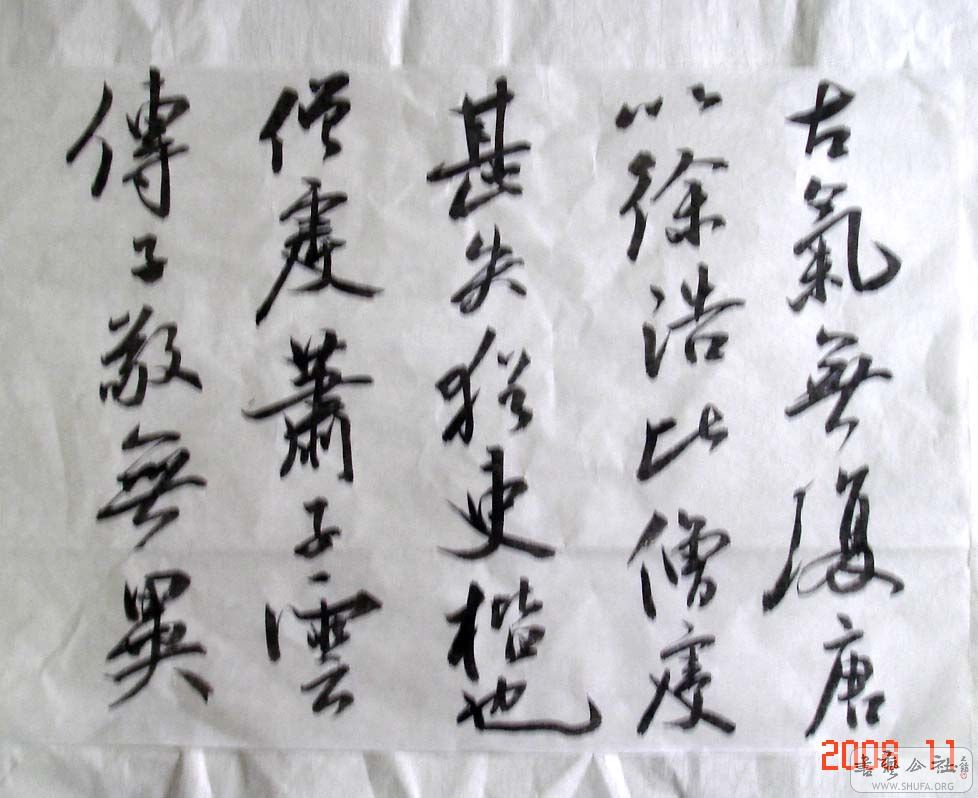 古氣無復唐
以徐浩比僧虔
甚失猶吏楷也
僧虔蕭子雲
傳子敬無異
11
書藝公社
WWW.SHUFA.ORG